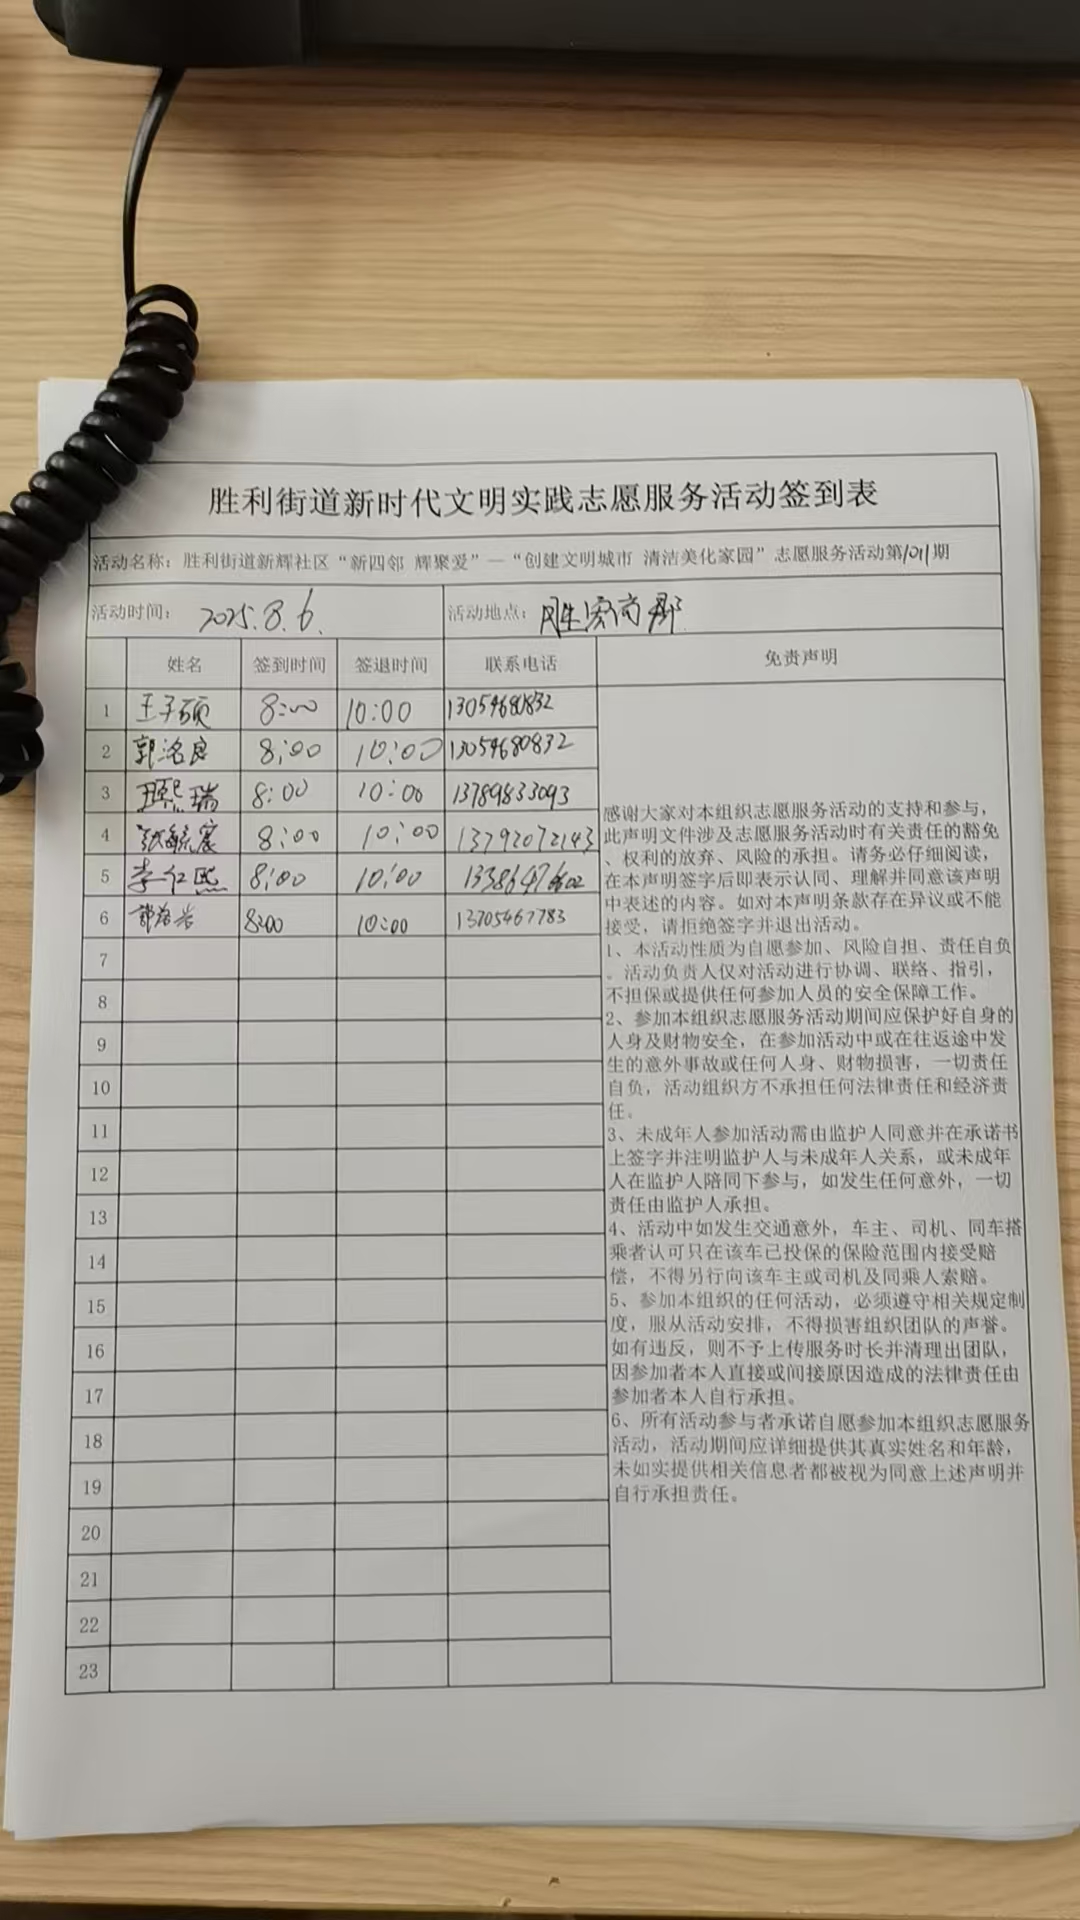 胜利街道新时代文明实践志愿服务活动签到表
活动名称：胜利街道新辉社区“新四邻 辉聚爱”—“创建文明城市 清洁美化家园”志愿服务活动第1011期
活动时间： 2025.8.6. 活动地点：胜
姓名 签到时间 签退时间 联系电话 免责声明
1 王子硕 8:00 10:00 13054680832
2 郭洺良 8:00 10:00 13054680832
3 王熙瑞 8:00 10:00 13789833093
4 张毓宸 8:00 10:00 13792072143
5 李仁熙 8:00 10:00
6 8:00 10:00 13705467783
7
8
9
10
11
12
13
14
15
16
17
18
19
20
21
22
23
感谢大家对本组织志愿服务活动的支持和参与，
此声明文件涉及志愿服务活动时有关责任的豁免
、权利的放弃、风险的承担。请务必仔细阅读，
在本声明签字后即表示认同、理解并同意该声明
中表述的内容。如对本声明条款存在异议或不能
接受，请拒绝签字并退出活动。
1、本活动性质为自愿参加、风险自担、责任自负
。活动负责人仅对活动进行协调、联络、指引，
不担保或提供任何参加人员的安全保障工作。
2、参加本组织志愿服务活动期间应保护好自身的
人身及财物安全，在参加活动中或在往返途中发
生的意外事故或任何人身、财物损害，一切责任
自负，活动组织方不承担任何法律责任和经济责
任。
3、未成年人参加活动需由监护人同意并在承诺书
上签字并注明监护人与未成年人关系，或未成年
人在监护人陪同下参与，如发生任何意外，一切
责任由监护人承担。
4、活动中如发生交通意外，车主、司机、同车搭
乘者认可只在该车已投保的保险范围内接受赔
偿，不得另行向该车主或司机及同乘人索赔。
5、参加本组织的任何活动，必须遵守相关规定制
度，服从活动安排，不得损害组织团队的声誉。
如有违反，则不予上传服务时长并清理出团队，
因参加者本人直接或间接原因造成的法律责任由
参加者本人自行承担。
6、所有活动参与者承诺自愿参加本组织志愿服务
活动，活动期间应详细提供其真实姓名和年龄，
未如实提供相关信息者都被视为同意上述声明并
自行承担责任。